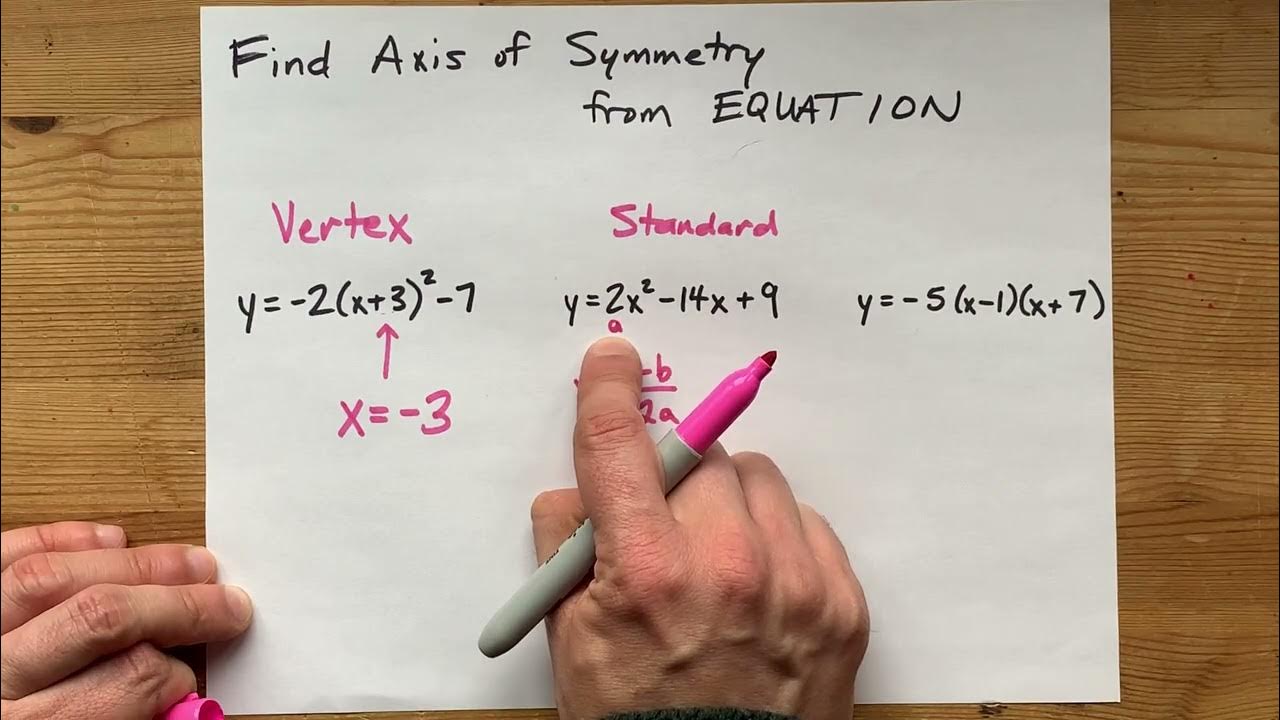 Find Axis of Symmetry
from EQUATION
Vertex
Standard
y=-2(x+3)²-7
y=2x²-14x+9
y=-5(x-1)(x+7)
a
-b
2a
x=-3